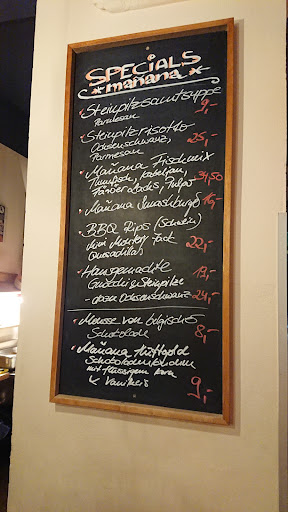 SPECIALS
mañana
Steinpilzsamtsuppe 9,-
Parmesan
Steinpilzrisotto
Ochsenschwanz, 25,-
Parmesan
Mañana Fischmix
Thunfisch, Kabeljau, 34,50
Färöer Lachs, Pulpo
Mañana Smashburger 16,-
BBQ Rips (Schwein)
Mini Montery Jack 22,-
Quesadillas
Hausgemachte 19,-
Gnocchi & Steinpilze
- dazu Ochsenschwanz 24,-
Mousse von belgischer
Schokolade 8,-
Mañana Hüftgold
Schokoladenkuchen
mit flüssigem Kern
Vanilleeis 9,-